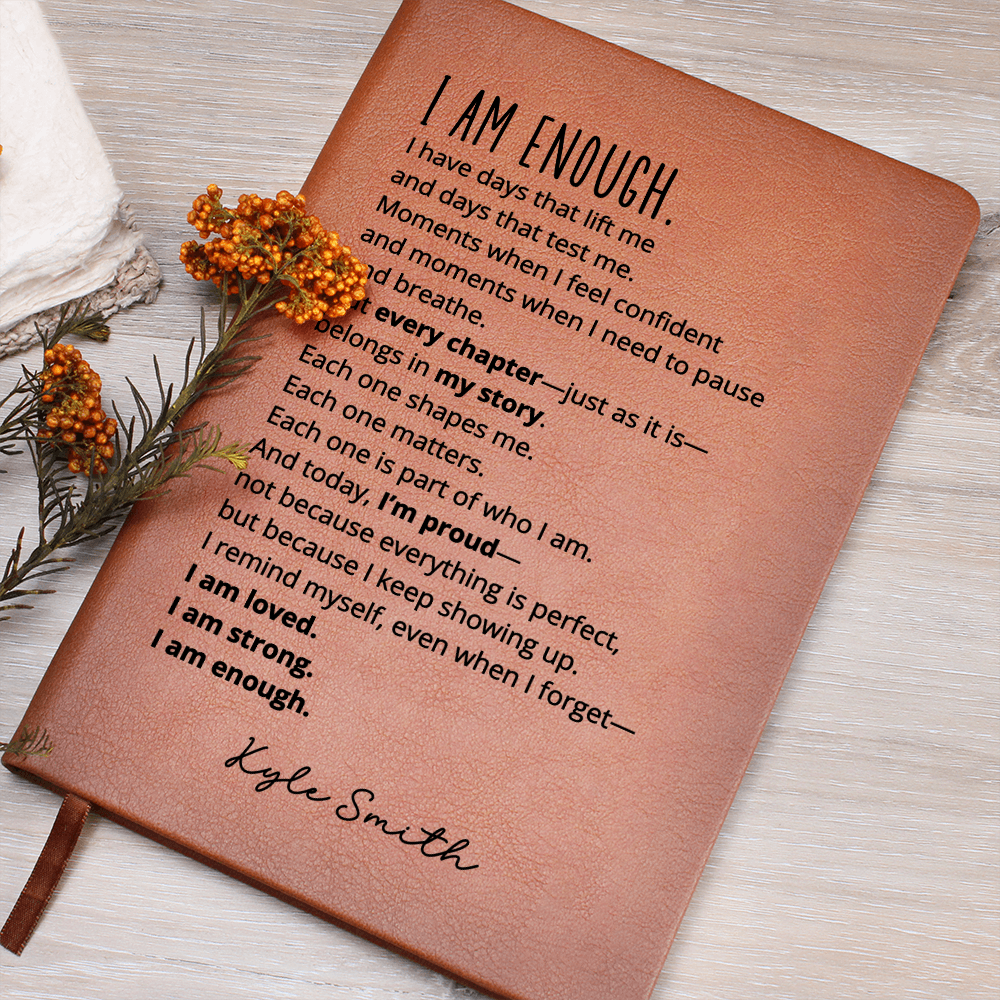 I AM ENOUGH.
I have days that lift me
and days that test me.
Moments when I feel confident
and moments when I need to pause
nd breathe.
t every chapter—just as it is—
belongs in my story.
Each one shapes me.
Each one matters.
Each one is part of who I am.
And today, I'm proud—
not because everything is perfect,
but because I keep showing up.
I remind myself, even when I forget—
I am loved.
I am strong.
I am enough.
Kyle Smith